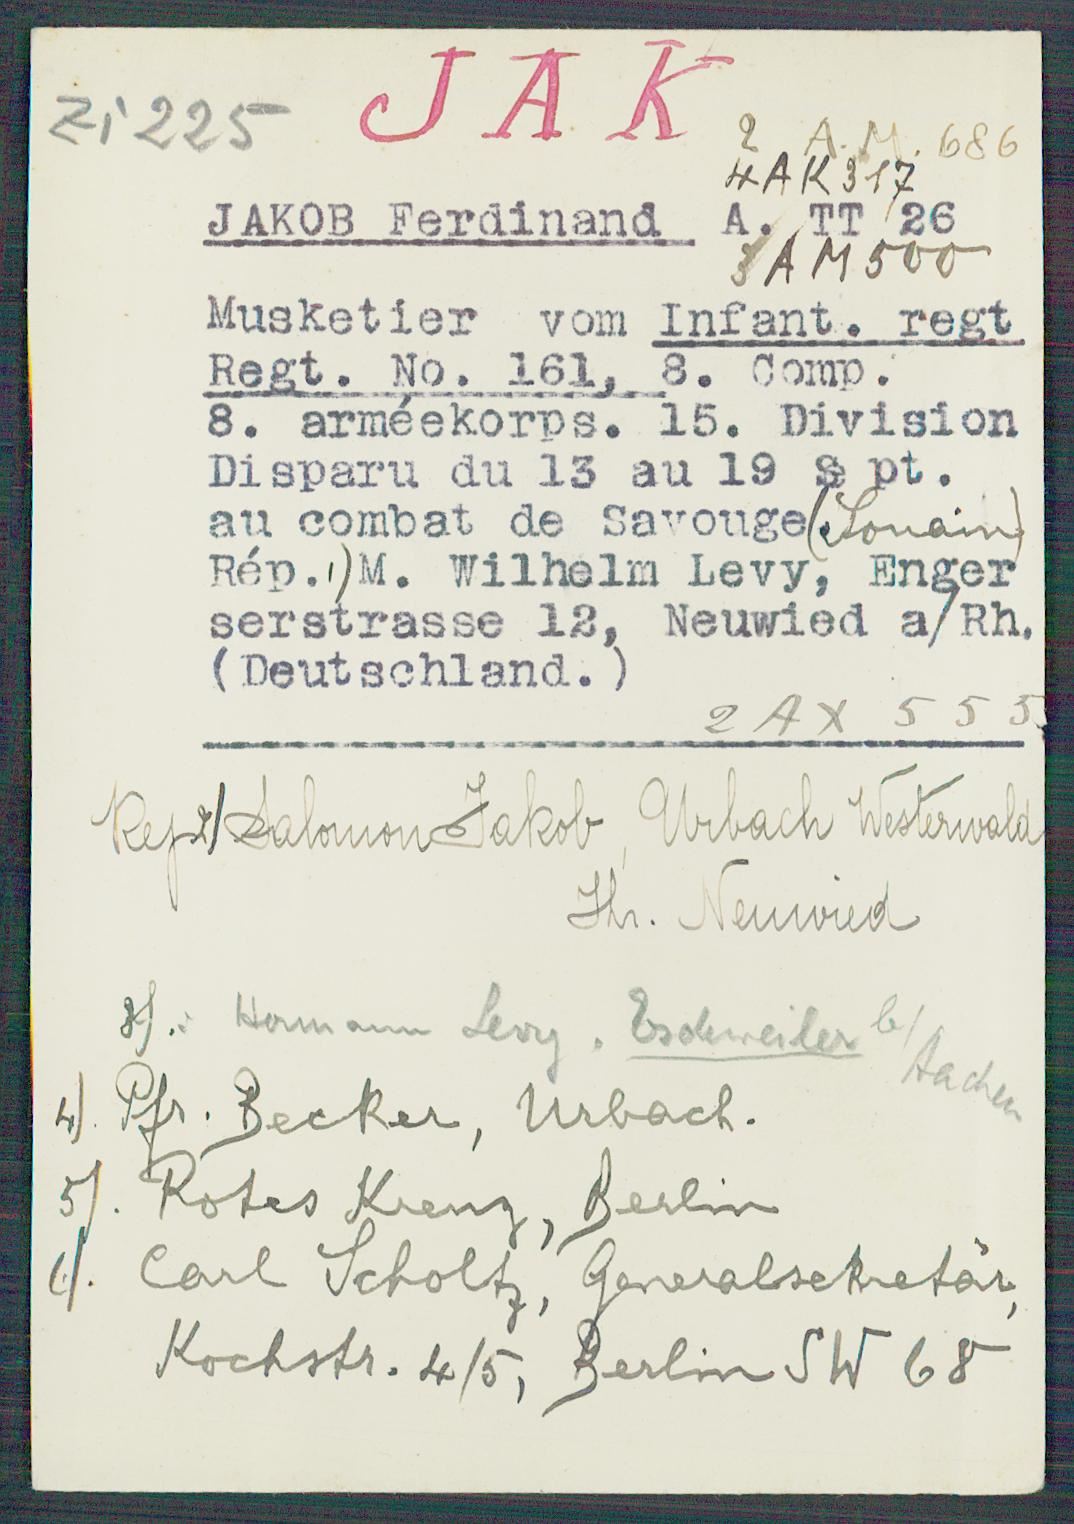 JAK
Zi 225
2 A.M. 686
4AK 317
JAKOB Ferdinand A. TT 26
3 AM 500
Musketier vom Infant. regt
Regt. No. 161, 8. Comp.
8. arméekorps. 15. Division
Disparu du 13 au 19 Sept.
au combat de Savouge (Souain)
Rép. 1) M. Wilhelm Levy, Enger
serstrasse 12, Neuwied a/Rh.
(Deutschland.)
2 AX 555
Rep 2/ Salomon Jakob, Urbach Westerwald
Neuwied
3). Hermann Levy. Eschweiler b/
Aachen
4). Pfr. Becker, Urbach.
5). Rotes Kreuz, Berlin
6). Carl Scholtz, Generalsekretär,
Kochstr. 4/5, Berlin SW 68